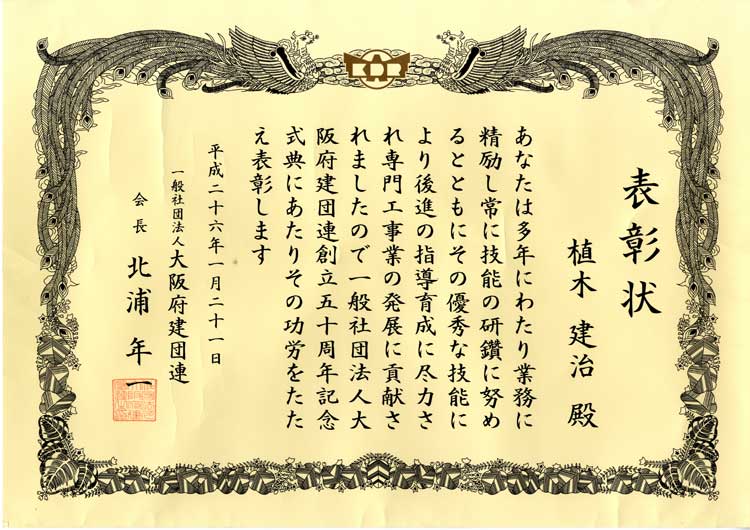 表彰状
植木 建治 殿
あなたは多年にわたり業務に
精励し常に技能の研鑽に努め
るとともにその優秀な技能に
より後進の指導育成に尽力さ
れ専門工事業の発展に貢献さ
れましたので一般社団法人大
阪府建団連創立五十周年記念
式典にあたりその功労をたた
え表彰します
平成二十六年一月二十一日
一般社団法人大阪府建団連
会長 北浦 年一